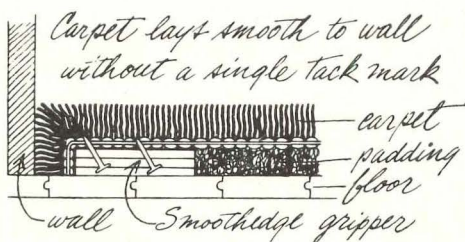 Carpet lays smooth to wall
without a single tack mark
carpet
padding
floor
wall
Smoothedge gripper